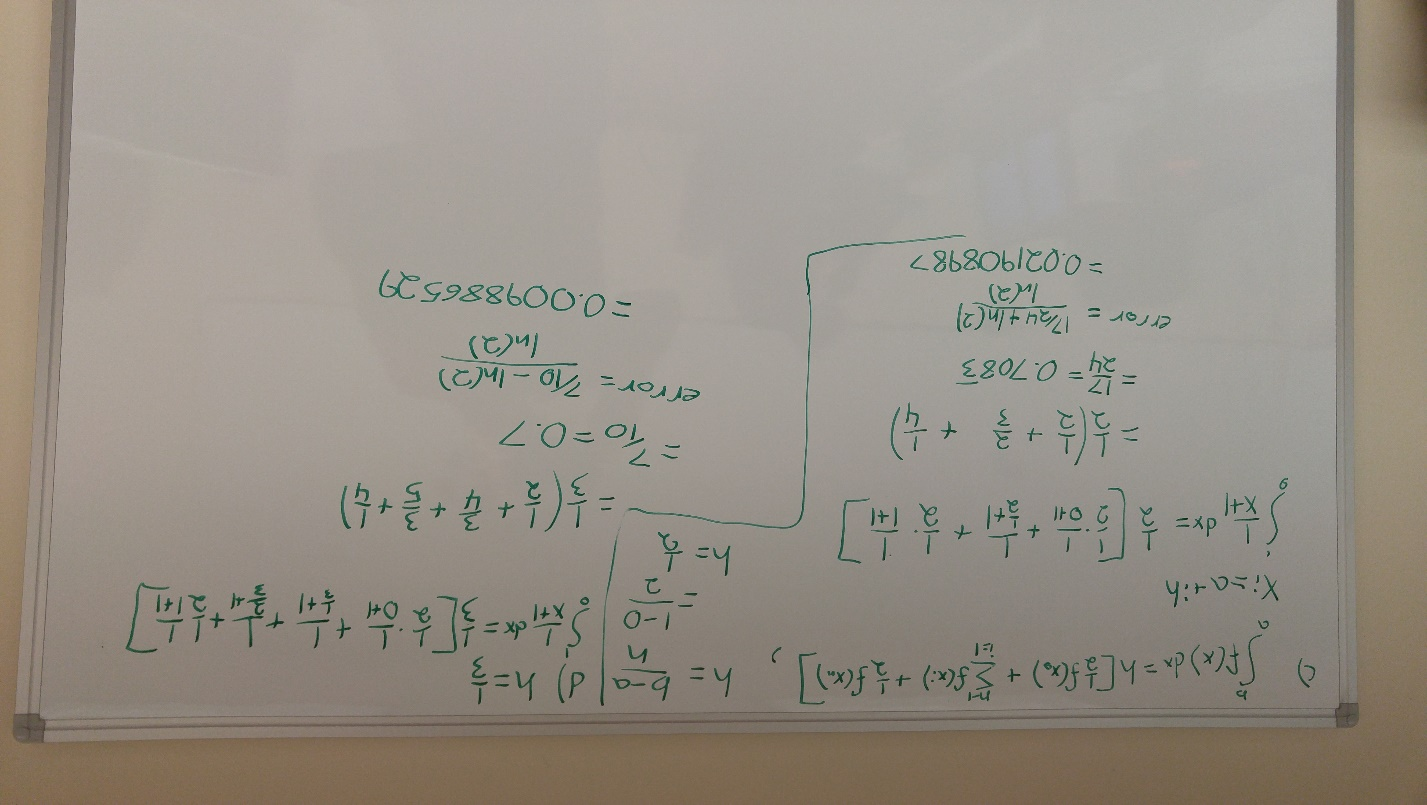 c) ∫_a^b f(x) dx = h[1/2 f(x₀) + Σ_{i=1}^{n-1} f(xᵢ) + 1/2 f(xₙ)] ,
xᵢ = a + ih
h = b-a/n
= 1-0/2
h = 1/2
∫_0^1 1/x+1 dx = 1/2 [1/2 · 1/0+1 + 1/(1/2+1) + 1/2 · 1/1+1]
= 1/2 (1/2 + 2/3 + 1/4)
= 17/24 = 0.7083
error = 17/24 + ln(2)/ln(2)
= 0.021908987
d) h = 1/3
∫_0^1 1/x+1 dx = 1/3 [1/2 · 1/0+1 + 1/(1/3+1) + 1/(2/3+1) + 1/2 1/1+1]
= 1/3 (1/2 + 3/4 + 3/5 + 1/4)
= 7/10 = 0.7
error = 7/10 - ln(2)/ln(2)
= 0.009886529